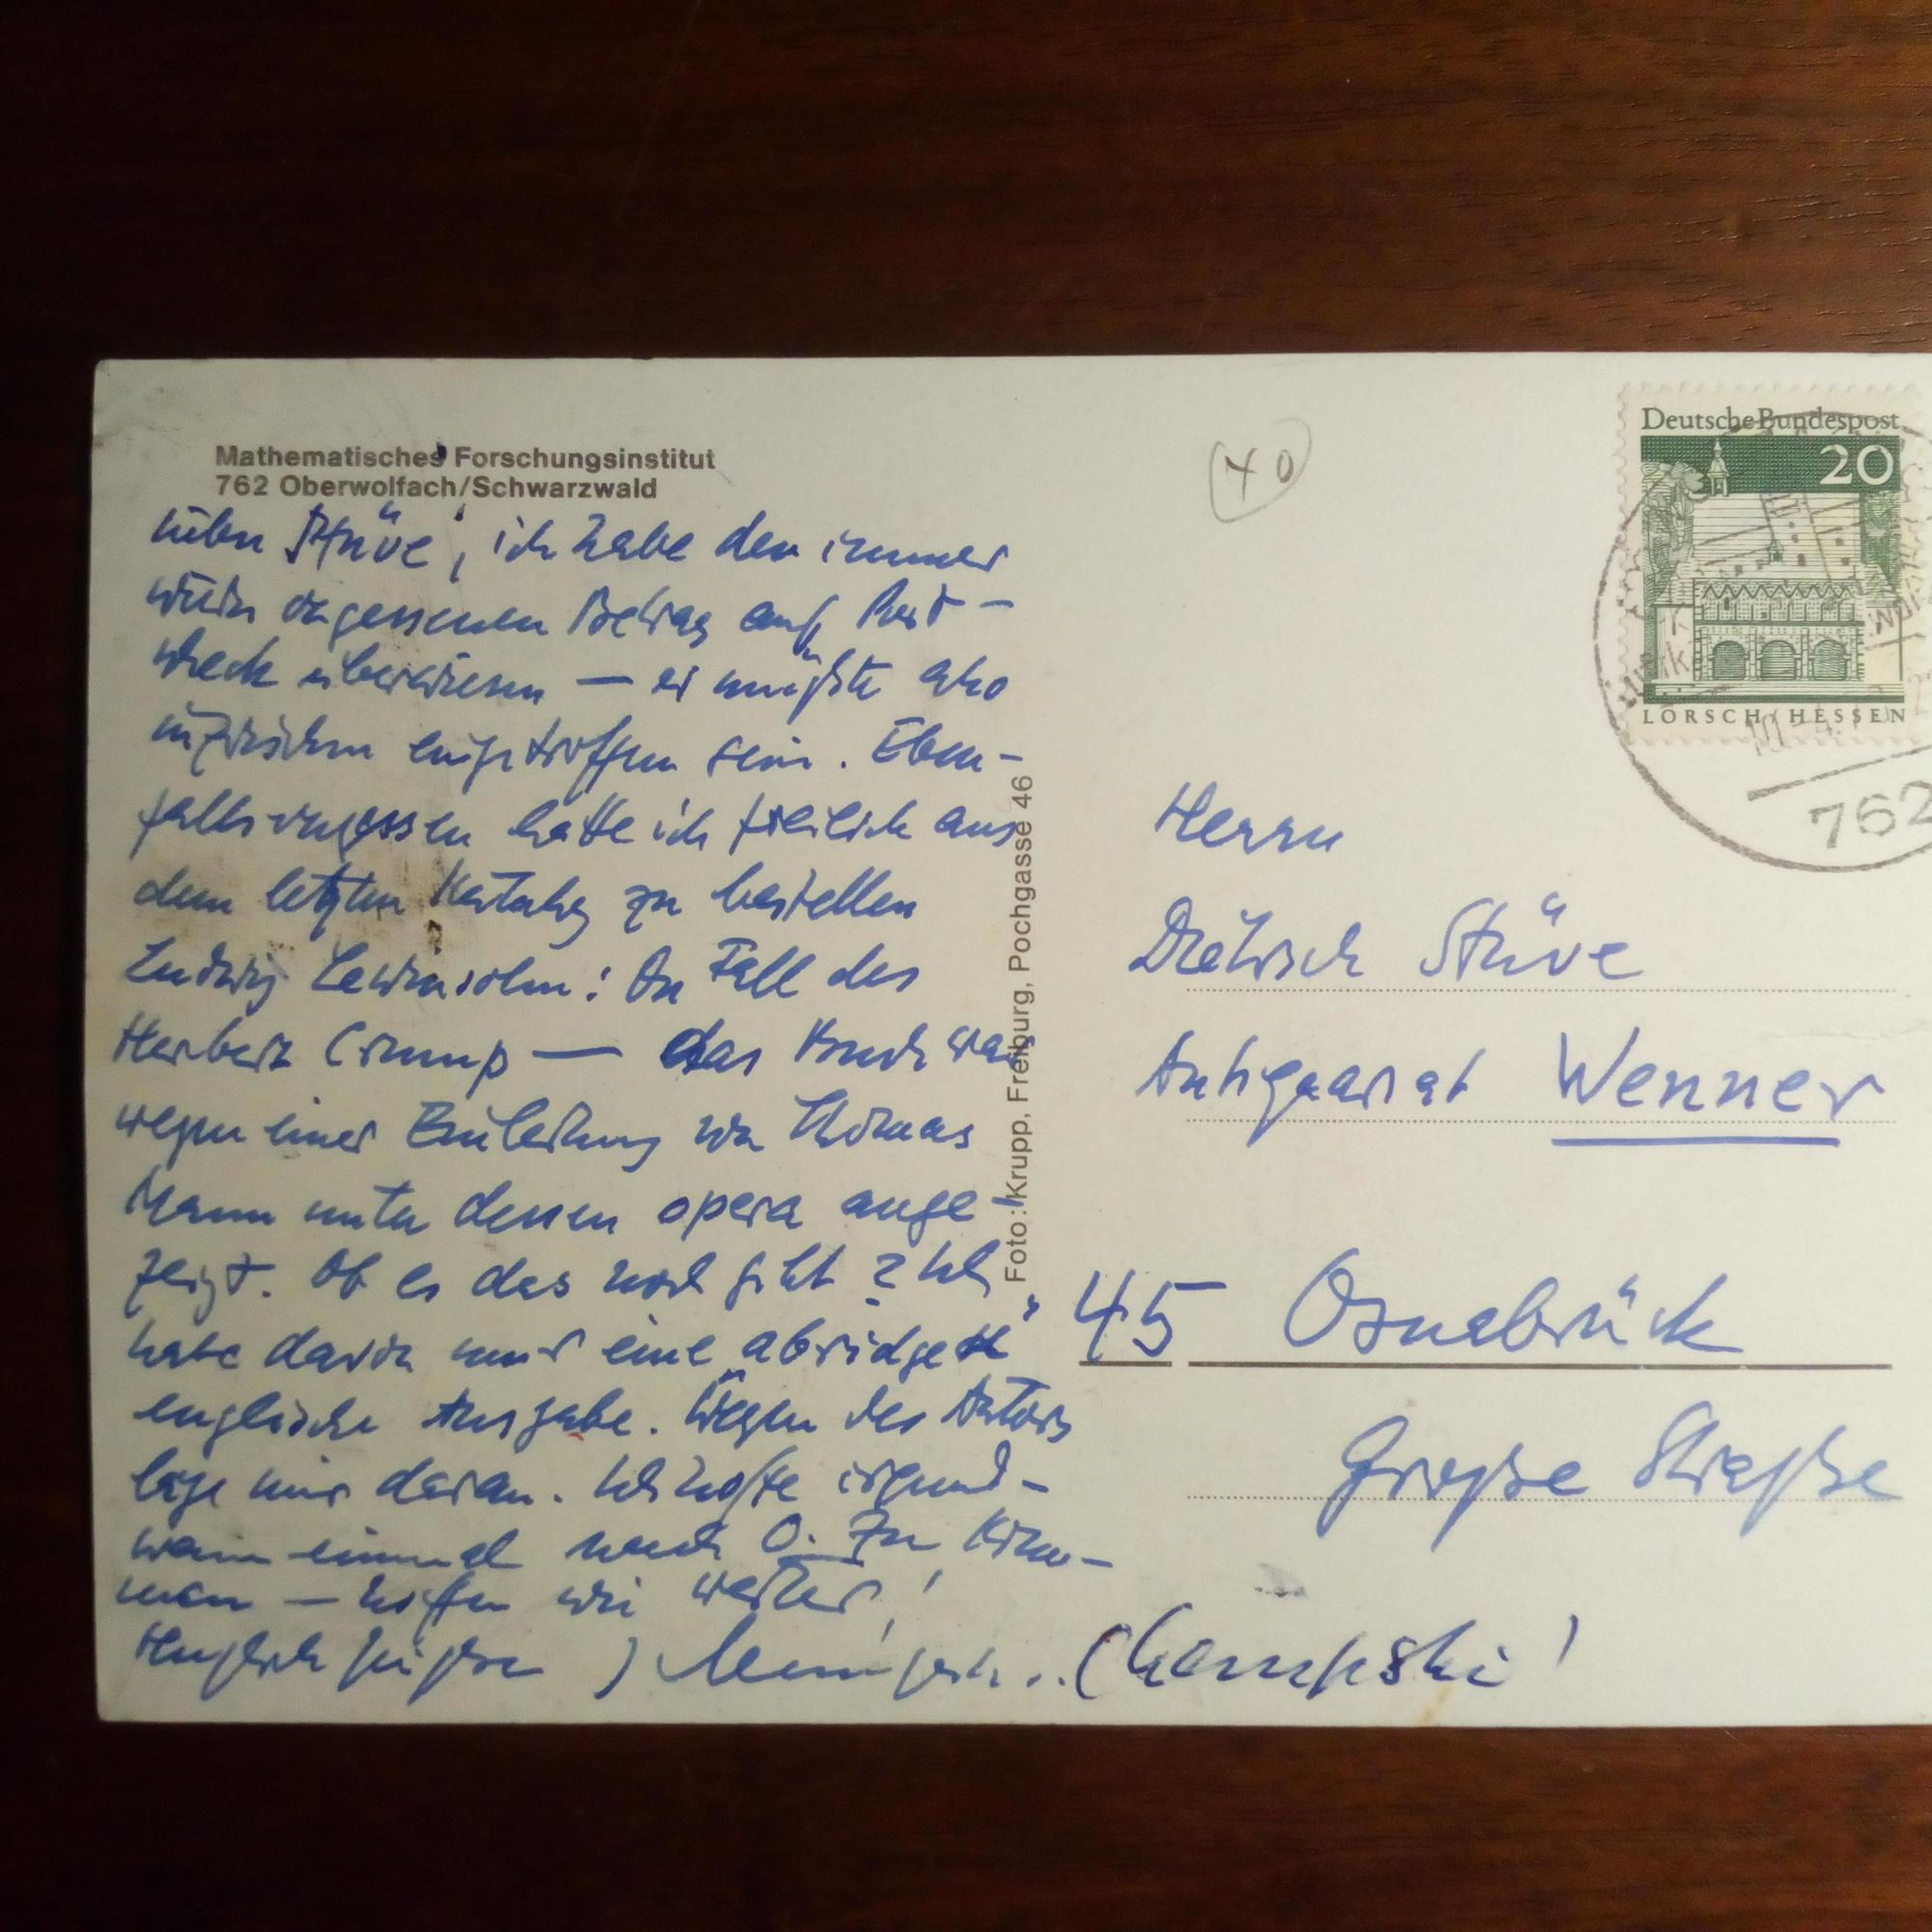 Mathematisches Forschungsinstitut
762 Oberwolfach/Schwarzwald
lieber Stüve, ich habe den immer
wieder vergessenen Betrag auf Post-
scheck überwiesen — er müßte also
inzwischen eingetroffen sein. Eben-
falls vergessen hatte ich freilich aus
dem letzten Katalog zu bestellen
Ludwig Lewisohn: Der Fall des
Herbert Crump — das Buch war
wegen einer Einleitung von Thomas
Mann unter dessen opera ange-
zeigt. Ob es das noch gibt? Ich
habe davon nur eine „abridged"
englische Ausgabe. Wegen des Autors
läge mir daran. Ich hoffe irgend-
wann einmal nach O. zu kom-
men — hoffen wir weiter!
Herzlich grüßen
Foto: Krupp, Freiburg, Pochgasse 46
40
Deutsche Bundespost
20
LORSCH / HESSEN
762
Herrn
Dietrich Stüve
Antiquariat Wenner
45 Osnabrück
Große Straße